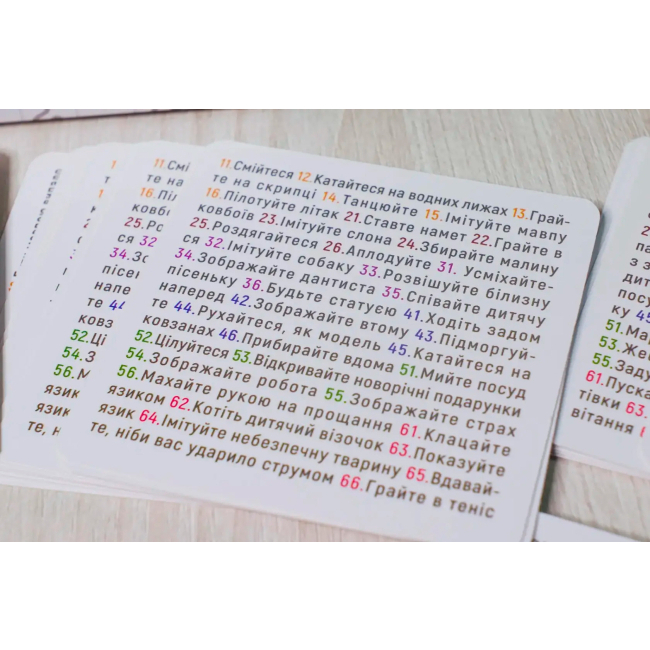 11.Смійтеся 12.Катайтеся на водних лижах 13.Грай-
те на скрипці 14.Танцюйте 15.Імітуйте мавпу
16.Пілотуйте літак 21.Ставте намет 22.Грайте в
ковбоїв 23.Імітуйте слона 24.Збирайте малину
25.Роздягайтеся 26.Аплодуйте 31. Усміхайте-
ся 32.Імітуйте собаку 33.Розвішуйте білизну
34.Зображайте дантиста 35.Співайте дитячу
пісеньку 36.Будьте статуєю 41.Ходіть задом
наперед 42.Зображайте втому 43.Підморгуй-
те 44.Рухайтеся, як модель 45.Катайтеся на
ковзанах 46.Прибирайте вдома 51.Мийте посуд
52.Цілуйтеся 53.Відкривайте новорічні подарунки
54.Зображайте робота 55.Зображайте страх
56.Махайте рукою на прощання 61.Клацайте
язиком 62.Котіть дитячий візочок 63.Показуйте
язик 64.Імітуйте небезпечну тварину 65.Вдавай-
те, ніби вас ударило струмом 66.Грайте в теніс
11.Смі
те на
16.Піл
ковбо
25.Ро
ся 32
34.Зо
пісен
напе
те 44
ковз
52.Ці
54.З
56.М
язик
язик
те, н
посу
ку 45
51.Ма
53.Же
55.Заду
61.Пуска
тівки 63.
вітання